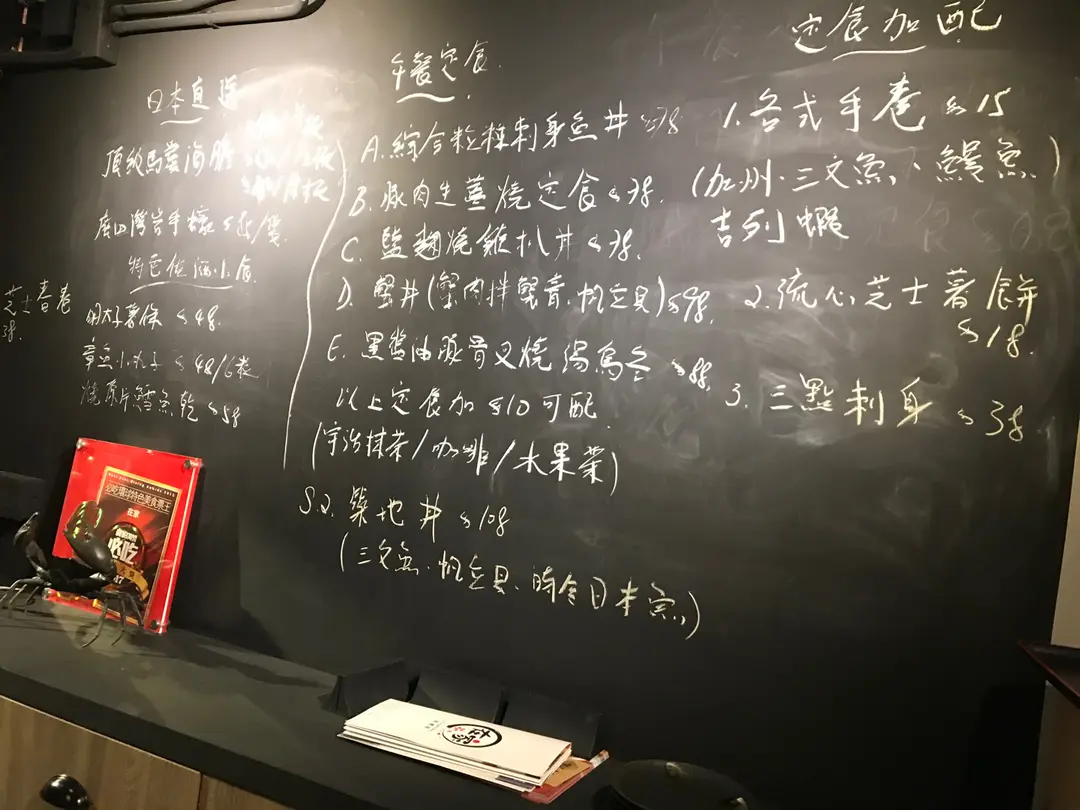 日本直送
頂級馬糞海膽
特色佐酒小食
明太子薯條 $48.
章魚小丸子 $48/6粒
燒原片鱈魚乾 $58
芝士春卷
38.
午餐定食.
A.綜合粒粒刺身魚丼 $78
B.豚肉生薑燒定食 $78.
C.鹽麴燒雞扒丼 $78.
D.蟹丼(蟹肉拌蟹膏.帆立貝)$98.
E.黑醬油豚骨叉燒湯烏冬 $88.
以上定食加$10可配.
(宇治抹茶/咖啡/水果茶)
S.Q.築地丼 $108
(三文魚.帆立貝.時令日本魚)
定食加配
1.各式手卷 $15
(加州.三文魚、鰻魚)
吉列蝦
2.流心芝士薯餅
$18.
3.三點刺身 $38
必吃環球特色美食票王